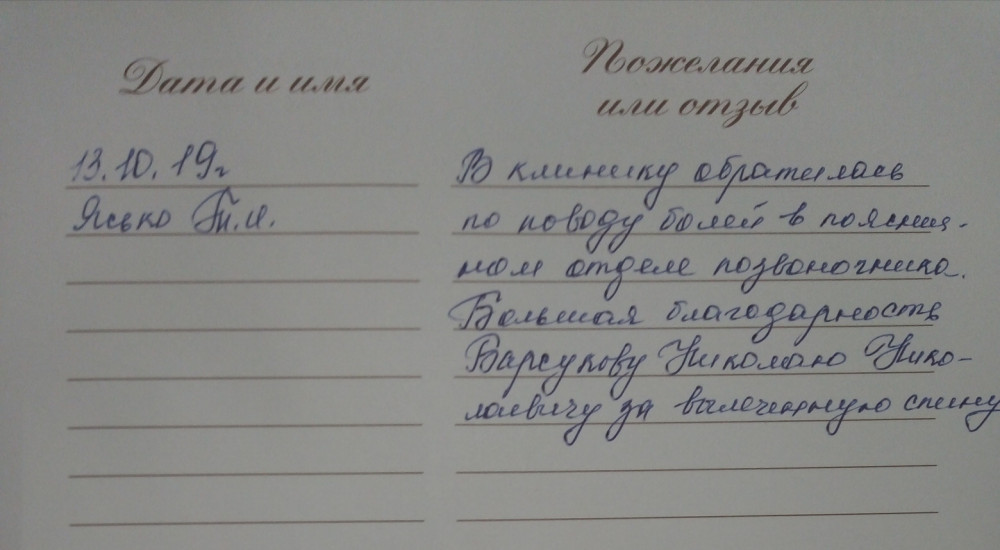 Дата и имя
Пожелания
или отзыв
13.10.19г
Ясько Т.И.
В клинику обратилась
по поводу болей в пояснич-
ном отделе позвоночника.
Большая благодарность
Барсукову Николаю Нико-
лаевичу за вылеченную спину